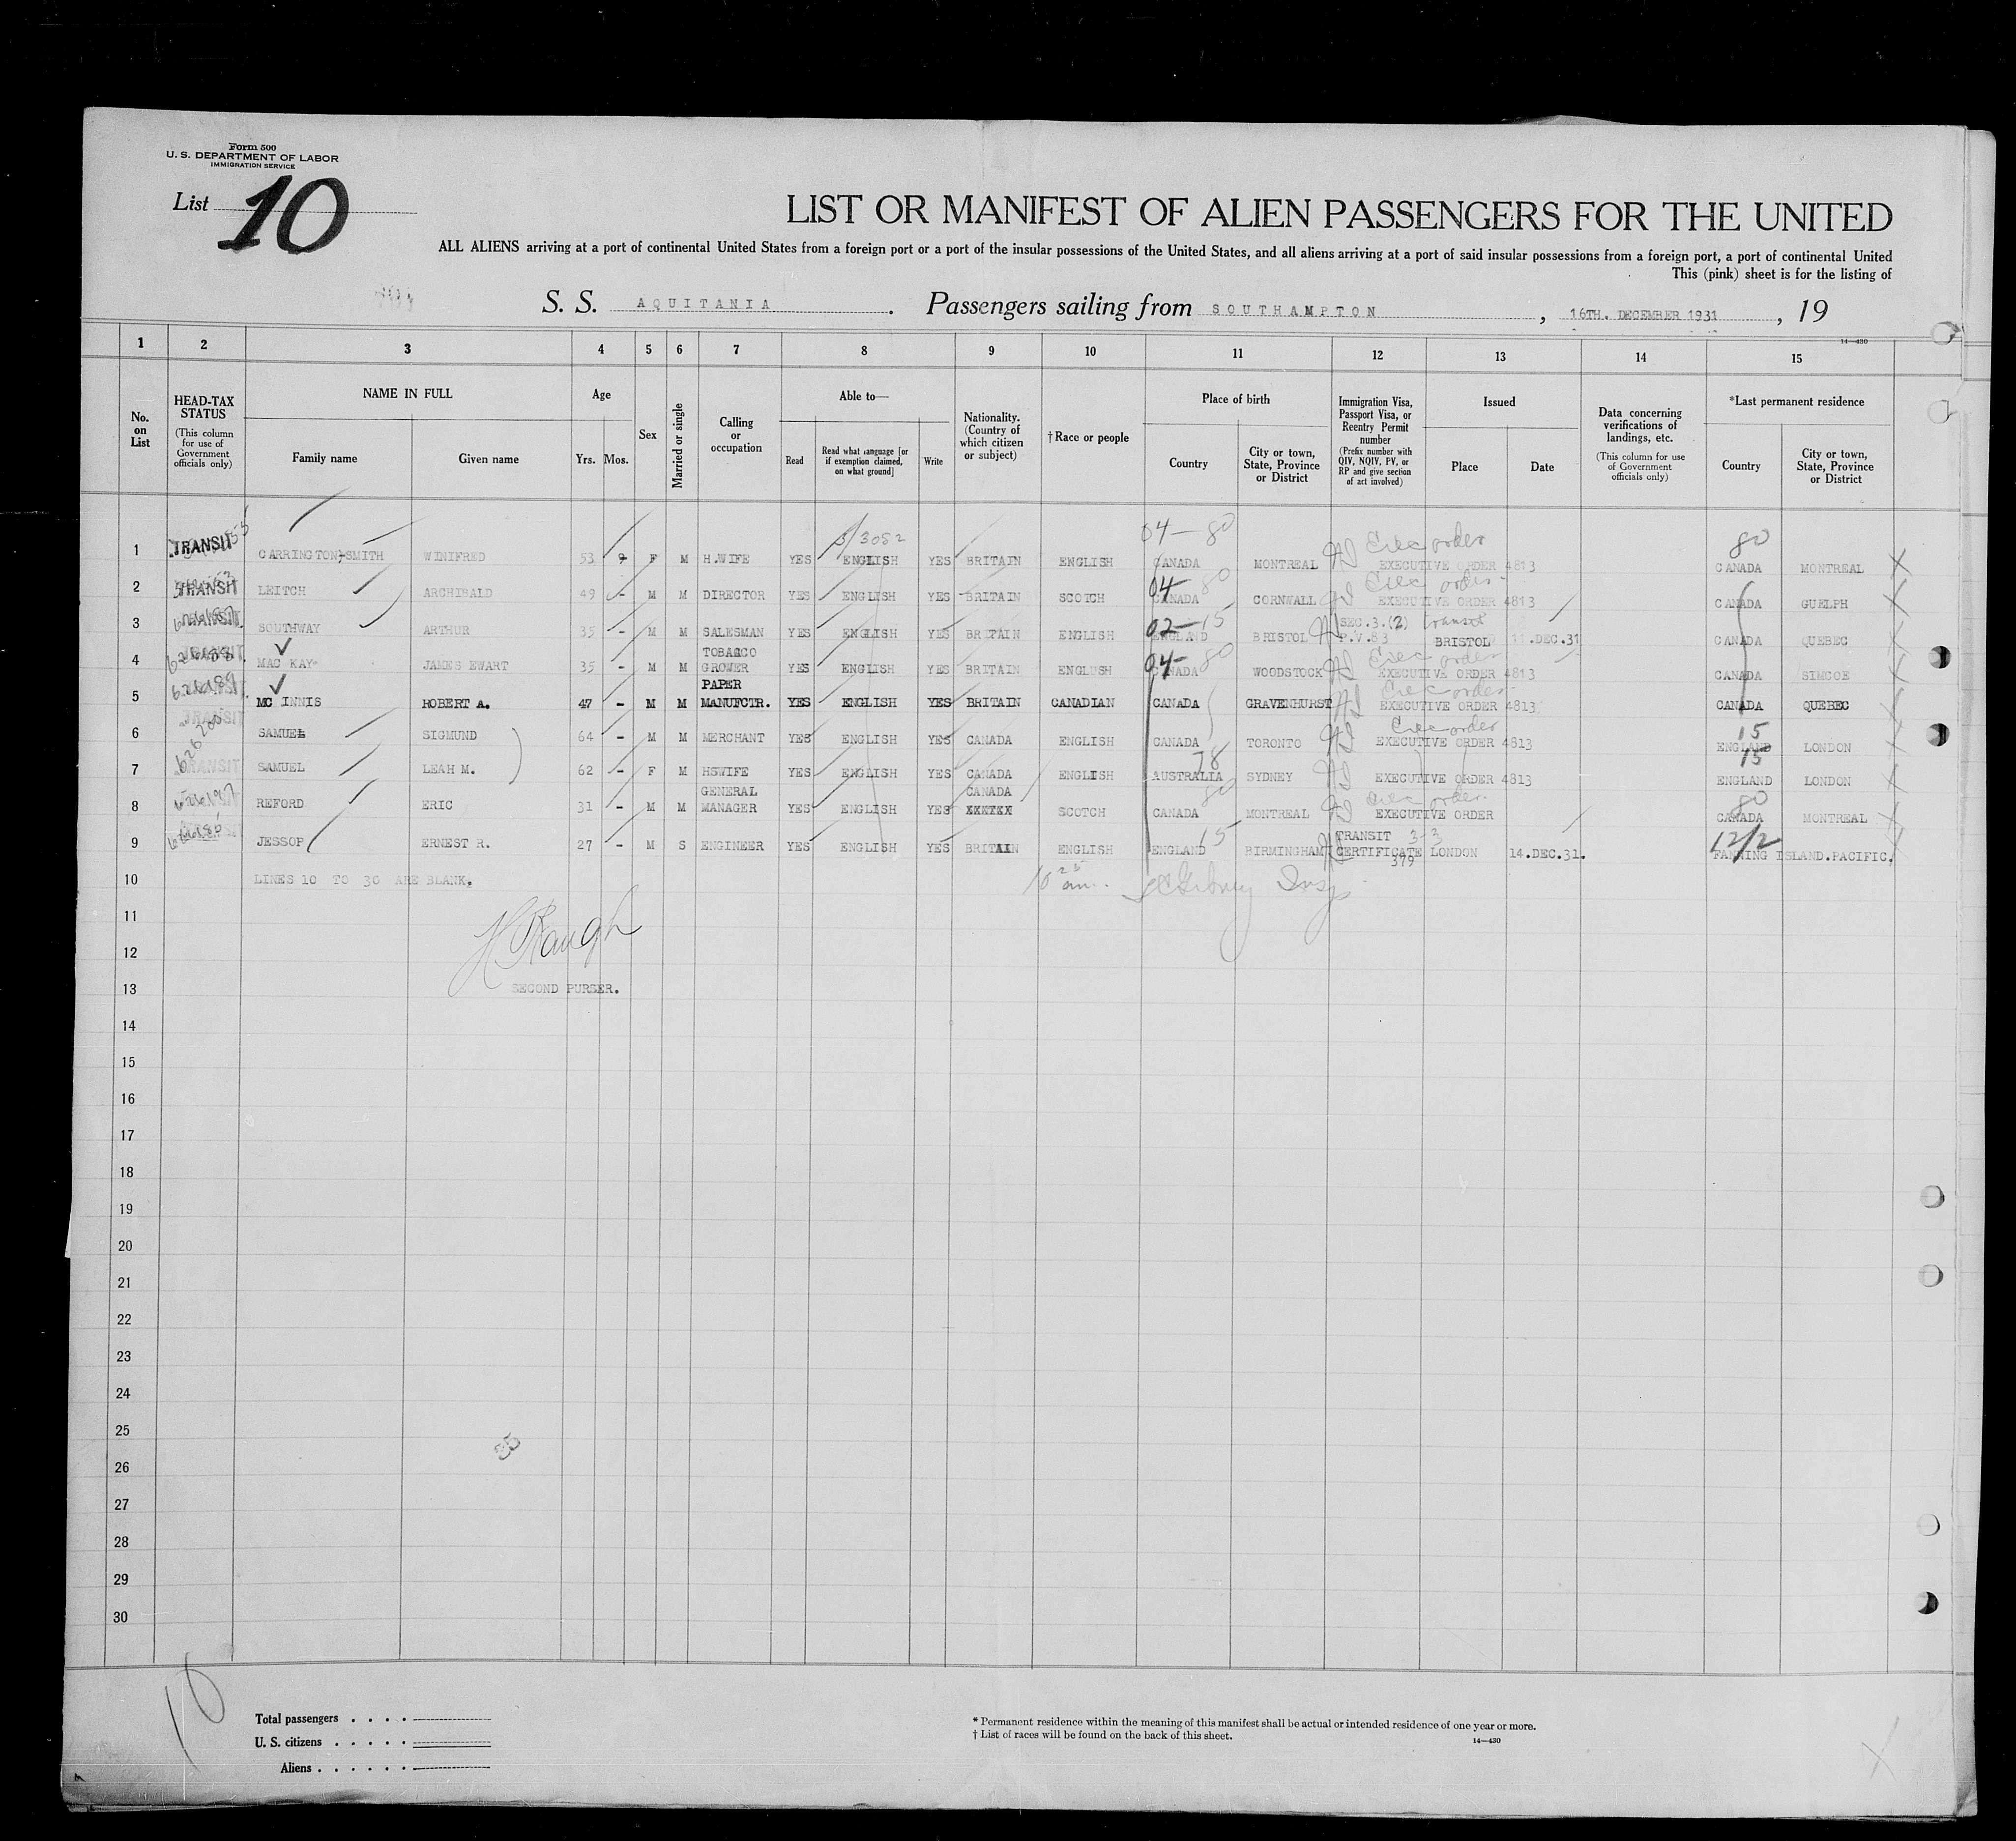 Form 500
U. S. DEPARTMENT OF LABOR
IMMIGRATION SERVICE
List 10
LIST OR MANIFEST OF ALIEN PASSENGERS FOR THE UNITED
ALL ALIENS arriving at a port of continental United States from a foreign port or a port of the insular possessions of the United States, and all aliens arriving at a port of said insular possessions from a foreign port, a port of continental United
This (pink) sheet is for the listing of
S. S. AQUITANIA. Passengers sailing from SOUTHAMPTON, 16TH. DECEMBER 1931, 19
14—430
1 2 3 4 5 6 7 8 9 10 11 12 13 14 15
No. on List
HEAD-TAX STATUS (This column for use of Government officials only)
NAME IN FULL Family name Given name
Age Yrs. Mos.
Sex
Married or single
Calling or occupation
Able to— Read Read what language [or if exemption claimed, on what ground] Write
Nationality. (Country of which citizen or subject)
†Race or people
Place of birth Country City or town, State, Province or District
Immigration Visa, Passport Visa, or Reentry Permit number (Prefix number with QIV, NQIV, PV, or RP and give section of act involved)
Issued Place Date
Data concerning verifications of landings, etc. (This column for use of Government officials only)
*Last permanent residence Country City or town, State, Province or District
3/3052 04-80 Exec order 80
1 TRANSIT CARRINGTON-SMITH WINIFRED 53 F M H.WIFE YES ENGLISH YES BRITAIN ENGLISH CANADA MONTREAL EXECUTIVE ORDER 4813 CANADA MONTREAL X
04 80 Exec order
2 TRANSIT LEITCH ARCHIBALD 49 - M M DIRECTOR YES ENGLISH YES BRITAIN SCOTCH CANADA CORNWALL EXECUTIVE ORDER 4813 CANADA GUELPH X
02-15 SEC.3.(2) transit
3 SOUTHWAY ARTHUR 35 - M M SALESMAN YES ENGLISH YES BRITAIN ENGLISH ENGLAND BRISTOL P.V.83 BRISTOL 11.DEC.31 CANADA QUEBEC X
TOBACCO 04-80 Exec order
4 MAC KAY JAMES EWART 35 - M M GROWER YES ENGLISH YES BRITAIN ENGLUSH CANADA WOODSTOCK EXECUTIVE ORDER 4813 CANADA SIMCOE X
PAPER Exec order
5 MC INNIS ROBERT A. 47 - M M MANUFCTR. YES ENGLISH YES BRITAIN CANADIAN CANADA GRAVENHURST EXECUTIVE ORDER 4813 CANADA QUEBEC X
Exec order 15
6 SAMUEL SIGMUND 64 - M M MERCHANT YES ENGLISH YES CANADA ENGLISH CANADA TORONTO EXECUTIVE ORDER 4813 ENGLAND LONDON X
78 15
7 SAMUEL LEAH M. 62 - F M HSWIFE YES ENGLISH YES CANADA ENGLISH AUSTRALIA SYDNEY EXECUTIVE ORDER 4813 ENGLAND LONDON X
GENERAL CANADA 80 Exec order 80
8 REFORD ERIC 31 - M M MANAGER YES ENGLISH YES SCOTCH CANADA MONTREAL EXECUTIVE ORDER CANADA MONTREAL X
15 TRANSIT 3-3 12/2
9 JESSOP ERNEST R. 27 - M S ENGINEER YES ENGLISH YES BRITAIN ENGLISH ENGLAND BIRMINGHAM CERTIFICATE LONDON 14.DEC.31. FANNING ISLAND.PACIFIC.
379
10 LINES 10 TO 30 ARE BLANK. 10 25 am.
11
12
13 SECOND PURSER.
14
15
16
17
18
19
20
21
22
23
24
25
26
27
28
29
30
10
Total passengers
U. S. citizens
Aliens
* Permanent residence within the meaning of this manifest shall be actual or intended residence of one year or more.
† List of races will be found on the back of this sheet.
14—430
X